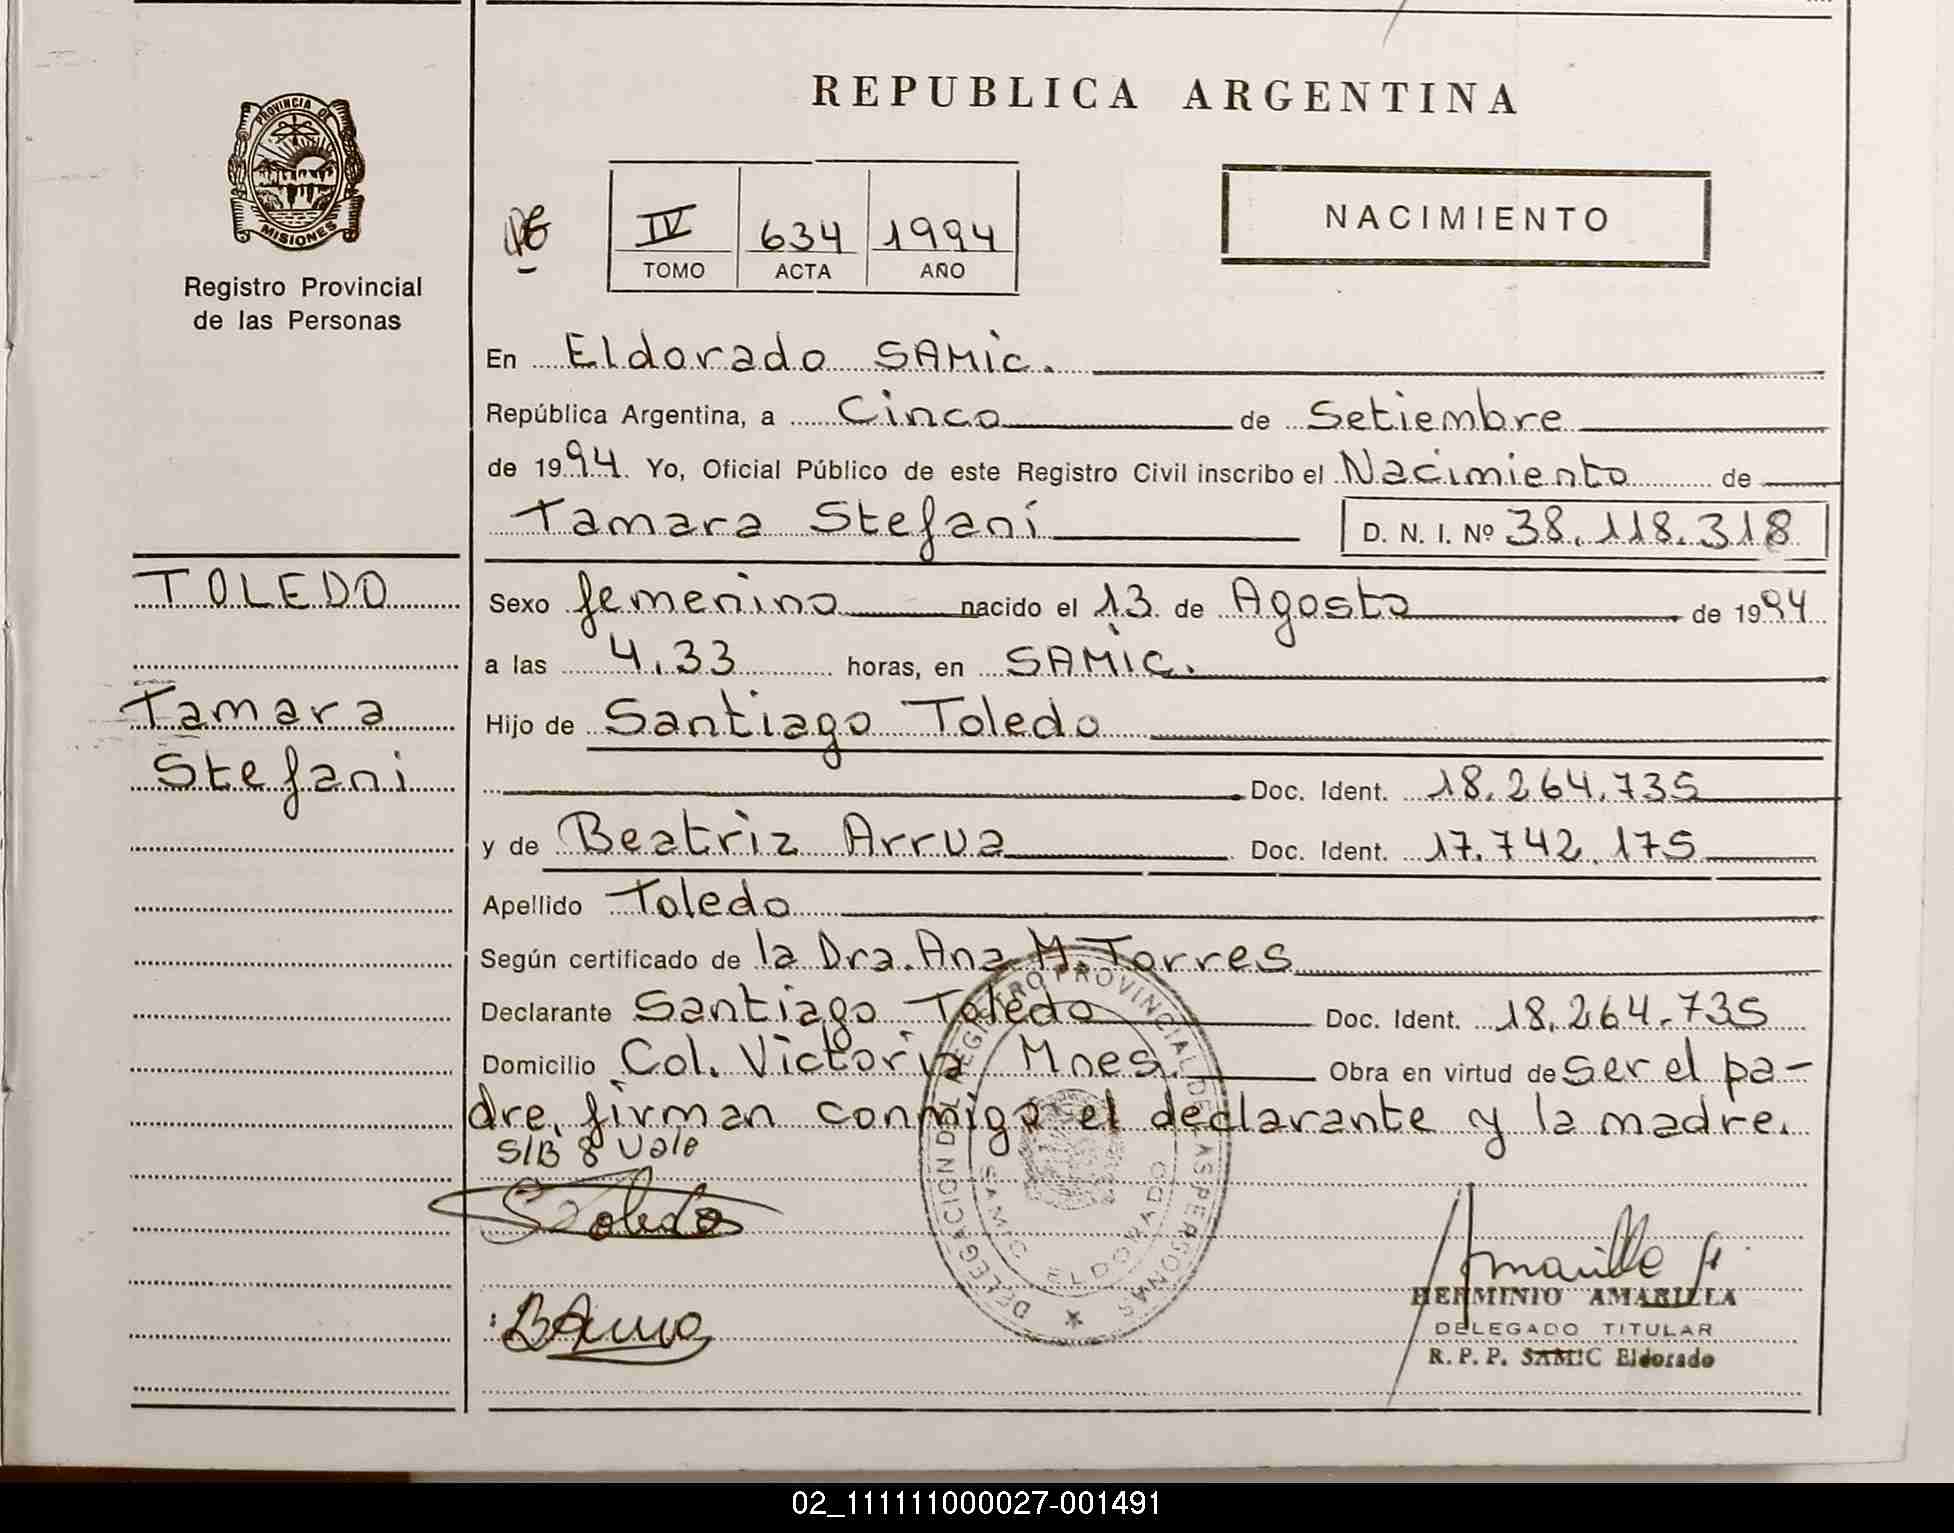 REPUBLICA ARGENTINA
PROVINCIA DE
MISIONES
Registro Provincial
de las Personas
IV 634 1994
TOMO ACTA AÑO
NACIMIENTO
En Eldorado SAMic.
República Argentina, a Cinco de Setiembre
de 1994. Yo, Oficial Público de este Registro Civil inscribo el Nacimiento de
Tamara Stefani D. N. I. Nº 38.118.318
TOLEDO
Tamara
Stefani
Sexo femenino nacido el 13 de Agosto de 1994
a las 4.33 horas, en SAMIC.
Hijo de Santiago Toledo
Doc. Ident. 18.264.735
y de Beatriz Arrua Doc. Ident. 17.742.175
Apellido Toledo
Según certificado de la Dra. Ana M. Torres
Declarante Santiago Toledo Doc. Ident. 18.264.735
Domicilio Col. Victoria Mnes. Obra en virtud de ser el pa-
dre, firman conmigo el declarante y la madre.
S/B 8 Vale
S Toledo
DELEGACION DEL REGISTRO PROVINCIAL DE LAS PERSONAS
SAMIC ELDORADO
BArrua
Amarilla H
HERMINIO AMARILLA
DELEGADO TITULAR
R. P. P. SAMIC Eldorado
02_111111000027-001491